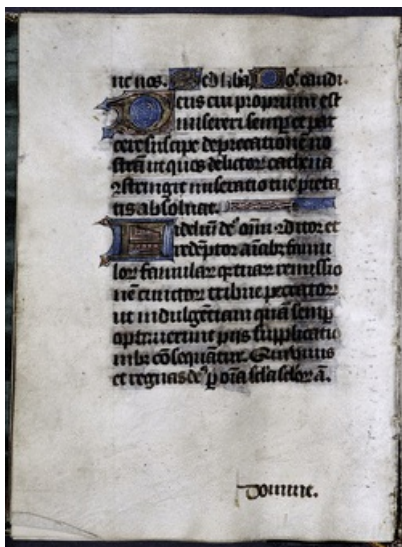 ne nos. Sed liba. Dō. exaudi.
Deus cui proprium est
misereri semp et par
cere suscipe deprecationē no
strā ut quos delictoꝝ cathena
ꝯstringit miseratio tue pieta
tis absoluat.
Fidelium deꝰ oīm ꝯditor et
redēptor aīabꝫ famu
loꝝ famulaꝝ qꝫ tuaꝝ remissio
nē cunctoꝝ tribue peccatoꝝ
ut indulgētiam quā semp
optauerunt pijs supplicatio
nibꝫ cōsequātur. Qui viuis
et regnas deꝰ p oīa scla scloꝝ a.
Domine.